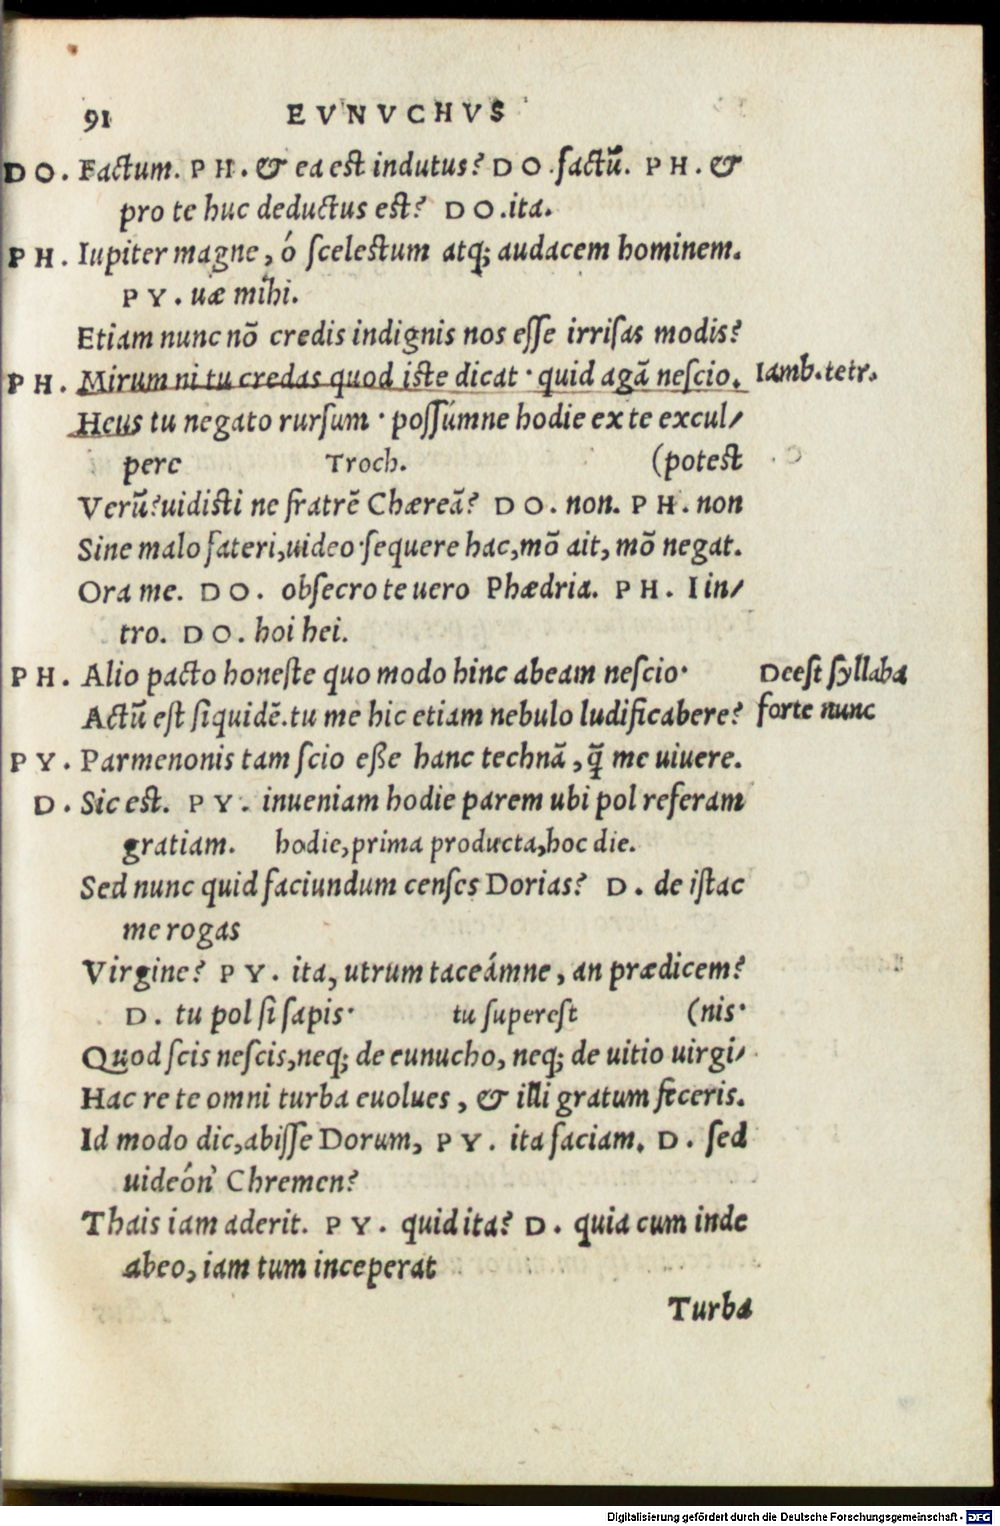 91 EVNVCHVS
DO. Factum. PH. & ea est indutus? DO. factũ. PH. &
pro te huc deductus est? DO. ita.
PH. Iupiter magne, ó scelestum atq; audacem hominem.
PY. uæ mihi.
Etiam nunc nõ credis indignis nos esse irrisas modis?
PH. Mirum ni tu credas quod iste dicat · quid agã nescio. Iamb. tetr.
Heus tu negato rursum · possúmne hodie ex te excul/
pere Troch. (potest
Verũ? uidisti ne fratrẽ Chæreã? DO. non. PH. non
Sine malo fateri, uideo · sequere hac, mõ ait, mõ negat.
Ora me. DO. obsecro te uero Phædria. PH. I in/
tro. DO. hoi hei.
PH. Alio pacto honeste quo modo hinc abeam nescio · Deest syllaba
Actũ est siquidẽ. tu me hic etiam nebulo ludificabere? forte nunc
PY. Parmenonis tam scio eße hanc technã, q̃ me uiuere.
D. Sic est. PY. inueniam hodie parem ubi pol referam
gratiam. hodie, prima producta, hoc die.
Sed nunc quid faciundum censes Dorias? D. de istac
me rogas
Virgine? PY. ita, utrum taceámne, an prædicem?
D. tu pol si sapis · tu superest (nis ·
Quod scis nescis, neq; de eunucho, neq; de uitio uirgi/
Hac re te omni turba euolues, & illi gratum feceris.
Id modo dic, abisse Dorum, PY. ita faciam. D. sed
uideón' Chremen?
Thais iam aderit. PY. quid ita? D. quia cum inde
abeo, iam tum inceperat
Turba
Digitalisierung gefördert durch die Deutsche Forschungsgemeinschaft - DFG